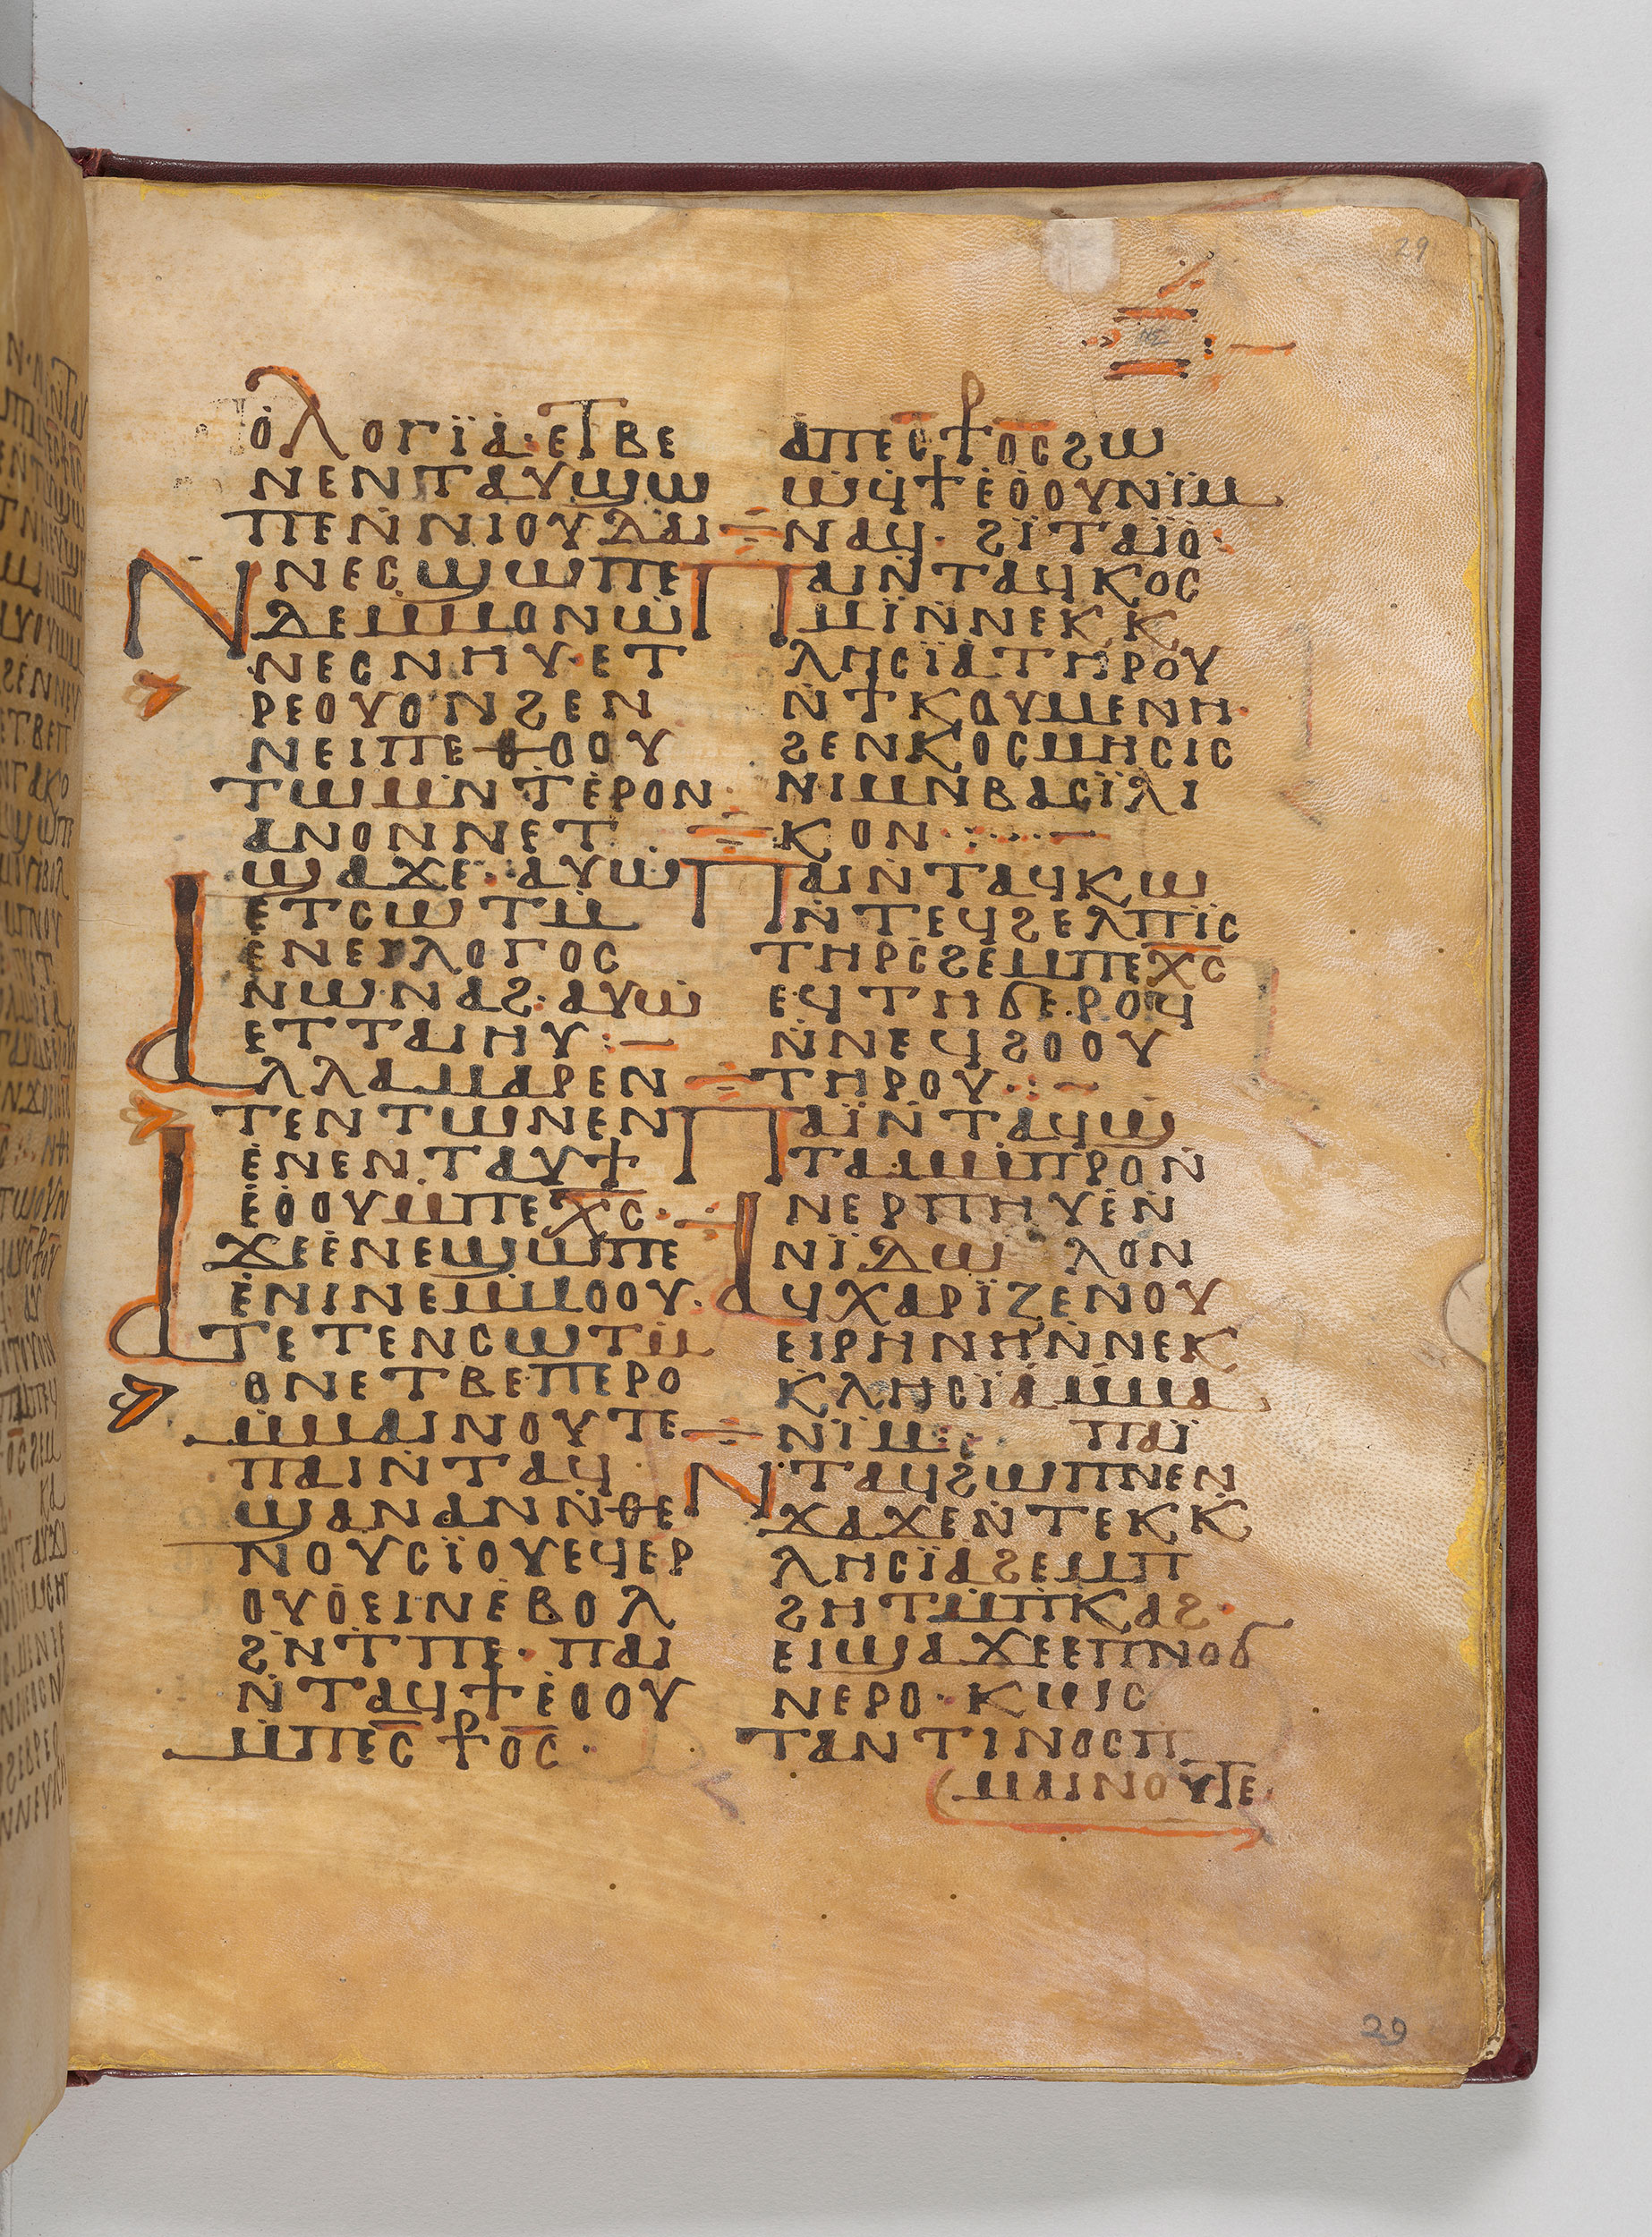 29
ⲛⲍ
ⲟⲗⲟⲅⲓ̈ⲁ·ⲉⲧⲃⲉ
ⲛⲉⲛⲧⲁⲩϣⲱ
ⲡⲉⲛⲛⲓⲟⲩⲇⲁⲓ
ⲛⲛⲉⲥϣⲱⲡⲉ
ⲇⲉⲙⲙⲟⲛⲱ
ⲛⲉⲥⲛⲏⲩ·ⲉⲧ
ⲣⲉⲟⲩⲟⲛϩⲉⲛ
ⲛⲉⲓⲡⲉⲑⲟⲟⲩ
ⲧⲱⲙⲛⲧⲉⲣⲟⲛ
ⲁⲛⲟⲛⲛⲉⲧ
ϣⲁϫⲉ·ⲁⲩⲱ
ⲉⲧⲥⲱⲧⲙ
ⲉⲛⲉⲓⲗⲟⲅⲟⲥ
ⲛⲱⲛⲁϩ·ⲁⲩⲱ
ⲉⲧⲧⲁⲓⲏⲩ:—
ⲁⲗⲗⲁⲙⲁⲣⲉⲛ
ⲧⲉⲛⲧⲱⲛⲉⲛ
ⲉⲛⲉⲛⲧⲁⲩϯ
ⲉⲟⲟⲩⲙⲡⲉⲭ̅ⲥ̅·
ϫⲉⲉⲛⲉϣⲱⲡⲉ
ⲉⲛⲓⲛⲉⲙⲙⲟⲟⲩ·
ⲁⲧⲉⲧⲉⲛⲥⲱⲧⲙ
ⲟⲛⲉⲧⲃⲉⲡⲉⲣⲟ
ⲙⲙⲁⲓⲛⲟⲩⲧⲉ
ⲡⲁⲓⲛⲧⲁϥ
ϣⲁⲛⲁⲛⲛⲑⲉ
ⲛⲟⲩⲥⲓ̈ⲟⲩⲉϥⲉⲣ
ⲟⲩⲟⲉⲓⲛⲉⲃⲟⲗ
ϩⲛⲧⲡⲉ·ⲡⲁⲓ
ⲛⲧⲁϥϯⲉⲟⲟⲩ
ⲙⲡⲉⲥ̅ⳁⲟ̅ⲥ·
ⲁⲡⲉⲥ̅ⳁⲟ̅ⲥϩⲱ
ⲱϥϯⲉⲟⲟⲩⲛⲓ̈ⲙ
ⲛⲁϥ·ϩⲓ̈ⲧⲁⲓ̈ⲟ:
ⲡⲁⲓⲛⲧⲁϥⲕⲟⲥ
ⲙⲓ̈ⲛⲛⲉⲕⲕ
ⲗⲏⲥⲓ̈ⲁⲧⲏⲣⲟⲩ
ⲛϯⲕⲟⲩⲙⲉⲛⲏ·
ϩⲉⲛⲕⲟⲥⲙⲏⲥⲓⲥ
ⲛⲓⲙⲛⲃⲁⲥⲓ̈ⲗⲓ
ⲕⲟⲛ·:····—
ⲡⲁⲓⲛⲧⲁϥⲕⲱ
ⲛⲧⲉϥϩⲉⲗⲡⲓ̈ⲥ
ⲧⲏⲣⲥϩⲉⲙⲡⲉⲭ̅ⲥ̅
ⲉϥⲧⲏϭⲉⲣⲟϥ
ⲛⲛⲉϥϩⲟⲟⲩ
ⲧⲏⲣⲟⲩ·:·—
ⲡⲁⲓ̈ⲛⲧⲁϥϣ
ⲧⲁⲙⲙⲡⲣⲟⲛ
ⲛⲉⲣⲡⲏⲩⲉⲛ
ⲛⲓ̈ⲇⲱⲗⲟⲛ
ⲁϥⲭⲁⲣⲓ̈ⲍⲉⲛⲟⲩ
ⲉⲓⲣⲏⲛⲏⲛⲛⲉⲕ
ⲕⲗⲏⲥⲓ̈ⲁⲙⲙⲁ
ⲛⲓ̈ⲙ:· ⲡⲁⲓ̈
ⲛⲧⲁϥϩⲱⲡⲛⲉⲛ
ϫⲁϫⲉⲛⲧⲉⲕⲕ
ⲗⲏⲥⲓ̈ⲁϩⲉⲙⲡ
ϩⲏⲧⲙⲡⲕⲁϩ·
ⲉⲓϣⲁϫⲉⲉⲡⲛⲟϭ
ⲛⲉⲣⲟ·ⲕⲱⲥ
ⲧⲁⲛⲧⲓⲛⲟⲥⲡ
ⲙⲁⲓⲛⲟⲩⲧⲉ
29